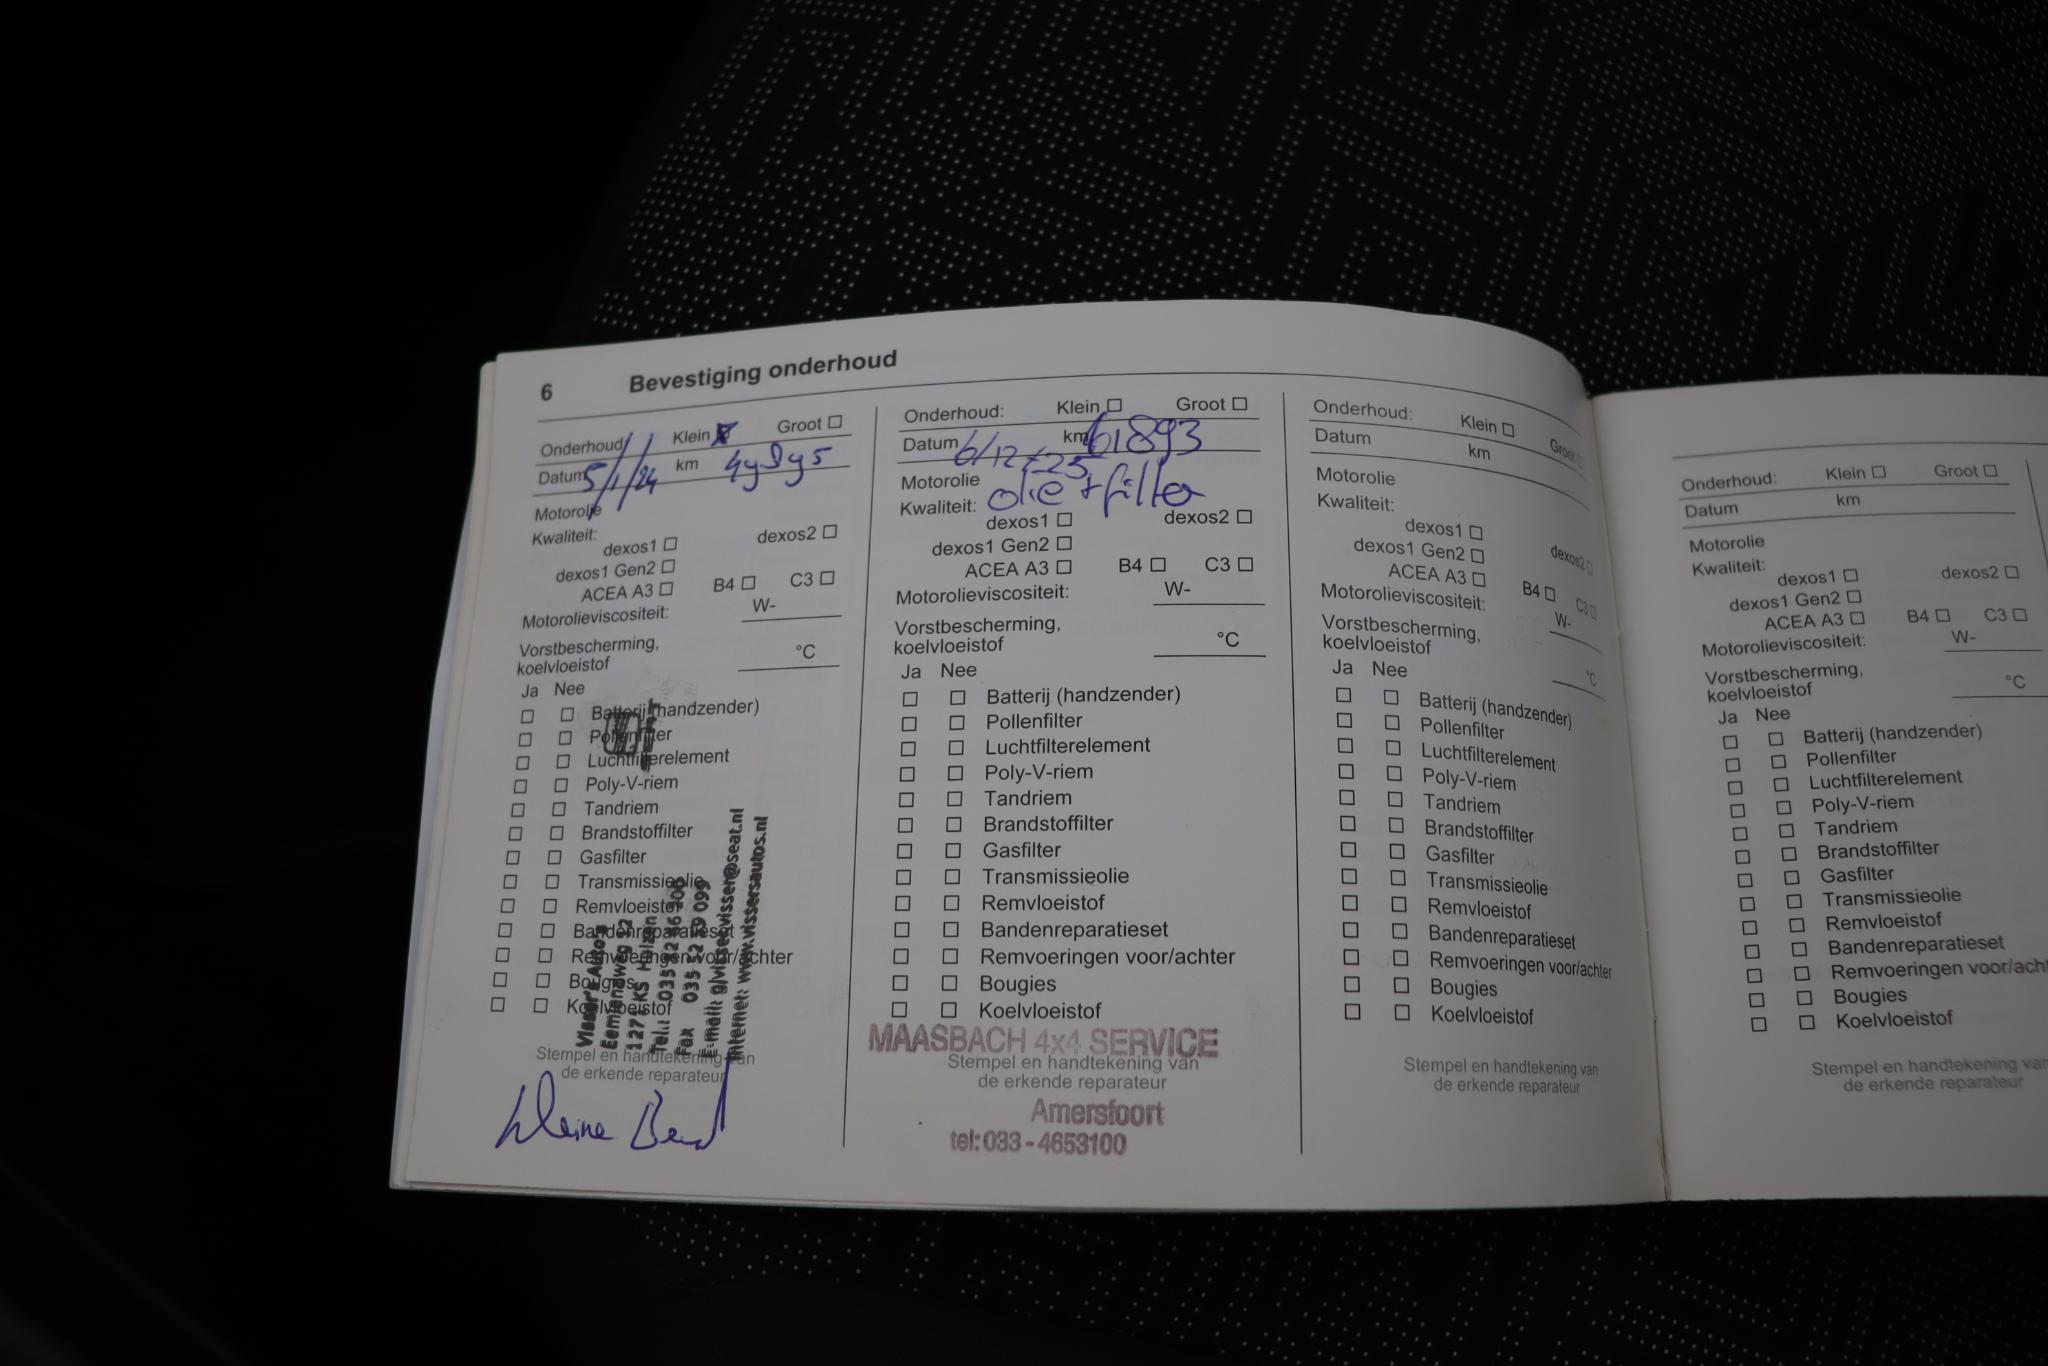 6 Bevestiging onderhoud
Onderhoud: Klein Groot
Datum 5/1/24 km
Motorolie
Kwaliteit:
dexos1 dexos2
dexos1 Gen2
ACEA A3 B4 C3
Motorolieviscositeit: W-
Vorstbescherming,
koelvloeistof °C
Ja Nee
Batterij (handzender)
Pollenfilter
Luchtfilterelement
Poly-V-riem
Tandriem
Brandstoffilter
Gasfilter
Transmissieolie
Remvloeistof
Bandenreparatieset
Remvoeringen voor/achter
Bougies
Koelvloeistof
Visser's Auto's
Eemlandweg
1271 KS Huizen
Tel.:
Fax
E-mail: givisser.visser@seat.nl
Internet: www.vissersautos.nl
Stempel en handtekening van
de erkende reparateur
kleine Beurt
Onderhoud: Klein Groot
Datum 6/12/-25 km 61893
Motorolie
Kwaliteit: olie + filter
dexos1 dexos2
dexos1 Gen2
ACEA A3 B4 C3
Motorolieviscositeit: W-
Vorstbescherming,
koelvloeistof °C
Ja Nee
Batterij (handzender)
Pollenfilter
Luchtfilterelement
Poly-V-riem
Tandriem
Brandstoffilter
Gasfilter
Transmissieolie
Remvloeistof
Bandenreparatieset
Remvoeringen voor/achter
Bougies
Koelvloeistof
MAASBACH 4x4 SERVICE
Stempel en handtekening van
de erkende reparateur
Amersfoort
tel: 033 - 4653100
Onderhoud: Klein Groot
Datum km
Motorolie
Kwaliteit:
dexos1 dexos2
dexos1 Gen2
ACEA A3 B4 C3
Motorolieviscositeit: W-
Vorstbescherming,
koelvloeistof °C
Ja Nee
Batterij (handzender)
Pollenfilter
Luchtfilterelement
Poly-V-riem
Tandriem
Brandstoffilter
Gasfilter
Transmissieolie
Remvloeistof
Bandenreparatieset
Remvoeringen voor/achter
Bougies
Koelvloeistof
Stempel en handtekening van
de erkende reparateur
Onderhoud: Klein Groot
Datum km
Motorolie
Kwaliteit:
dexos1 dexos2
dexos1 Gen2
ACEA A3 B4 C3
Motorolieviscositeit: W-
Vorstbescherming,
koelvloeistof °C
Ja Nee
Batterij (handzender)
Pollenfilter
Luchtfilterelement
Poly-V-riem
Tandriem
Brandstoffilter
Gasfilter
Transmissieolie
Remvloeistof
Bandenreparatieset
Remvoeringen voor/acht
Bougies
Koelvloeistof
Stempel en handtekening van
de erkende reparateur